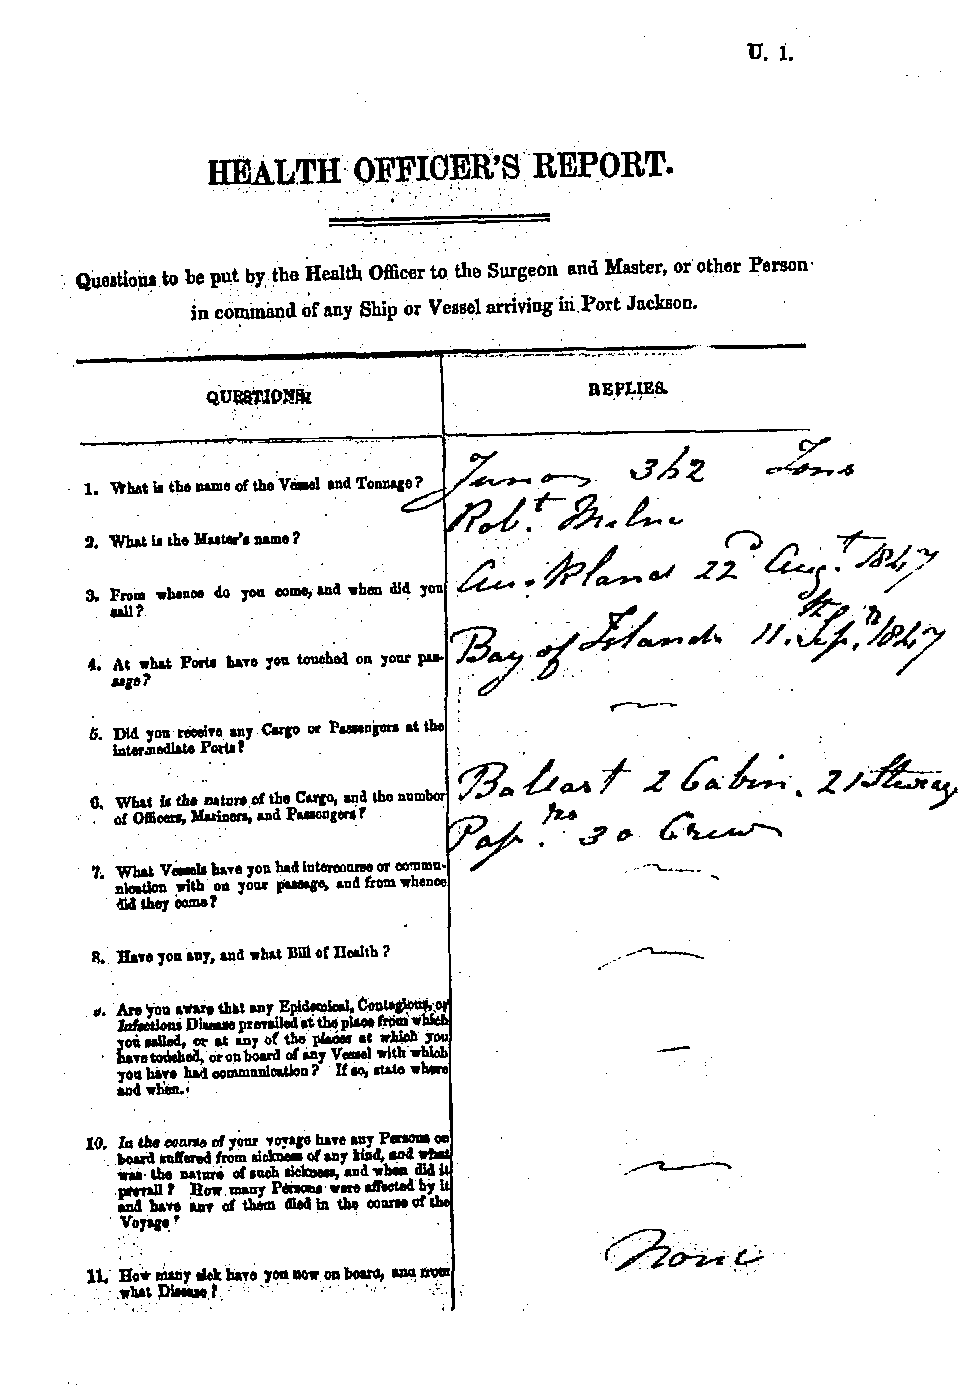 U. 1.
HEALTH OFFICER'S REPORT.
Questions to be put by the Health Officer to the Surgeon and Master, or other Person
in command of any Ship or Vessel arriving in Port Jackson.
QUESTIONS.
REPLIES.
1. What is the name of the Vessel and Tonnage?
Juno 362 Tons
2. What is the Master's name?
Robt. Milne
3. From whence do you come, and when did you
sail?
Auckland 22d Augt. 1847
4. At what Ports have you touched on your pas-
sage?
Bay of Islands 11th Sepr. 1847
5. Did you receive any Cargo or Passengers at the
intermediate Ports?
6. What is the nature of the Cargo, and the number
of Officers, Mariners, and Passengers?
Ballast 2 Cabin. 21 Steerage
Pasrs. 30 Crew
7. What Vessels have you had intercourse or commu-
nication with on your passage, and from whence
did they come?
8. Have you any, and what Bill of Health?
9. Are you aware that any Epidemical, Contagious, or
Infectious Disease prevailed at the place from which
you sailed, or at any of the places at which you
have touched, or on board of any Vessel with which
you have had communication? If so, state where
and when.
10. In the course of your voyage have any Persons on
board suffered from sickness of any kind, and what
was the nature of such sickness, and when did it
prevail? How many Persons were affected by it
and have any of them died in the course of the
Voyage?
11. How many sick have you now on board, and from
what Disease?
None